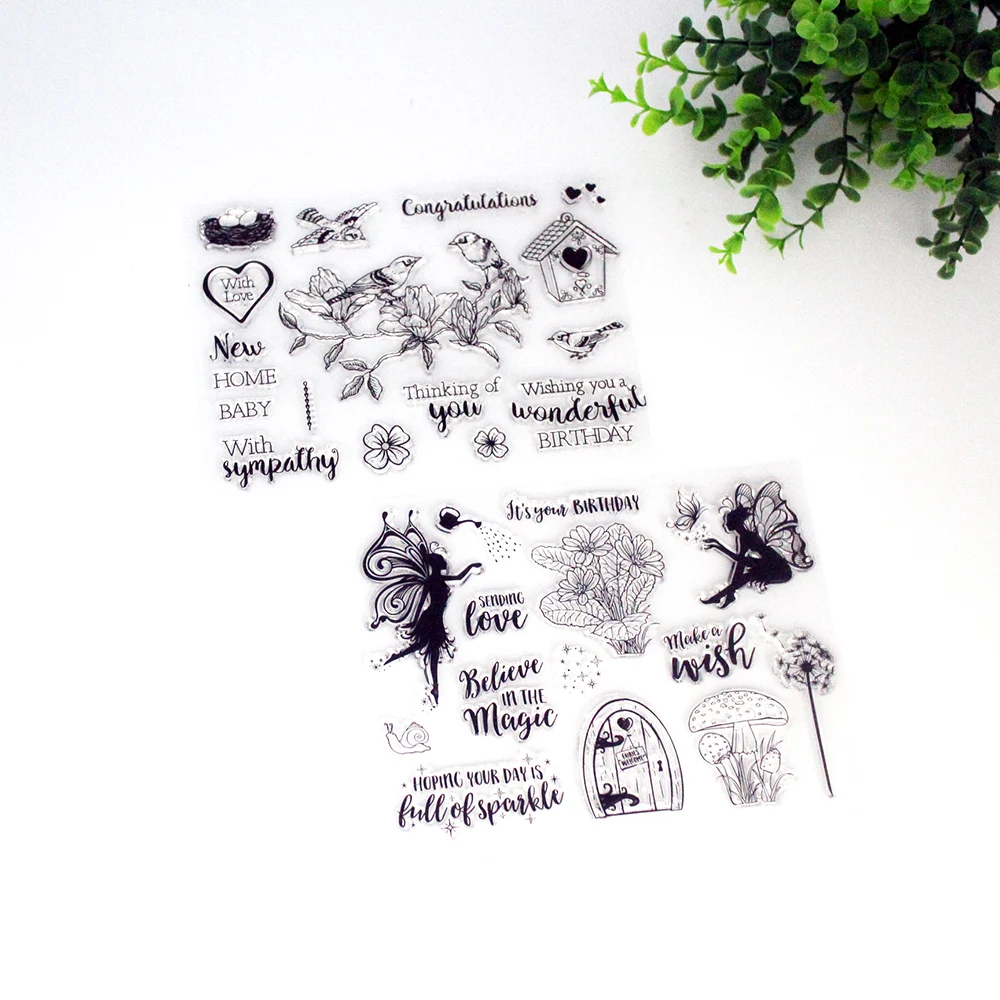 Congratulations
With
Love
New
HOME
BABY
With
sympathy
Thinking of
you
Wishing you a
wonderful
BIRTHDAY
It's your BIRTHDAY
SENDING
love
Make a
wish
Believe
IN THE
Magic
FAIRIES
WELCOME
HOPING YOUR DAY IS
full of sparkle